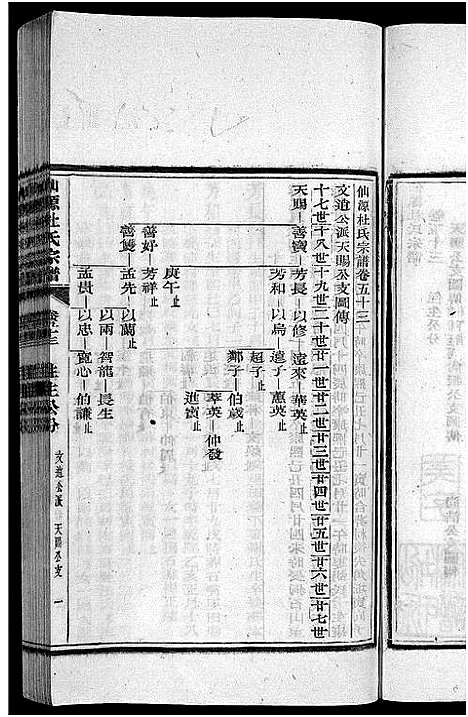 仙源杜氏宗譜卷五十三
文道公派天賜公支圖傳
十七世十八世十九世二十世廿一世廿二世廿三世廿四世廿五世廿六世廿七世
天賜—善寶—芳長—以修—遠來—華英止
芳和—以烏—遠子—蕙英止
超子止
鄭子—伯歲止
萃英—仲發止
進寶止
善好—芳祥止
庚午止
善雙—孟先—以蘭止
以兩—智龍—長生
孟貴—以忠—寬心—伯謙止
仙源杜氏宗譜
文道公派 天賜公支 一